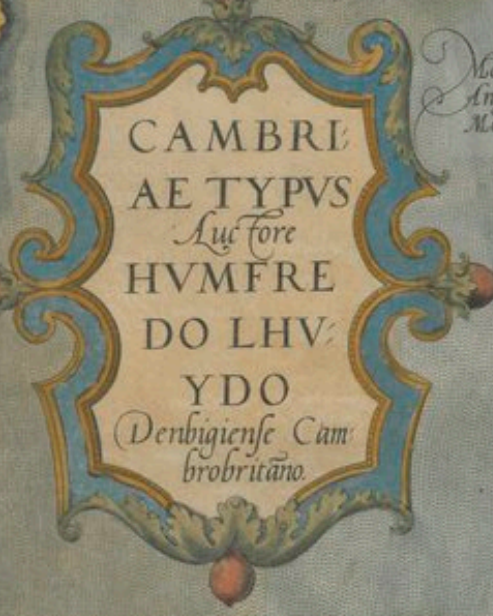 CAMBRI:
AE TYPVS
Auctore
HVMFRE
DO LHV:
YDO
Denbigiense Cam:
brobritāno.